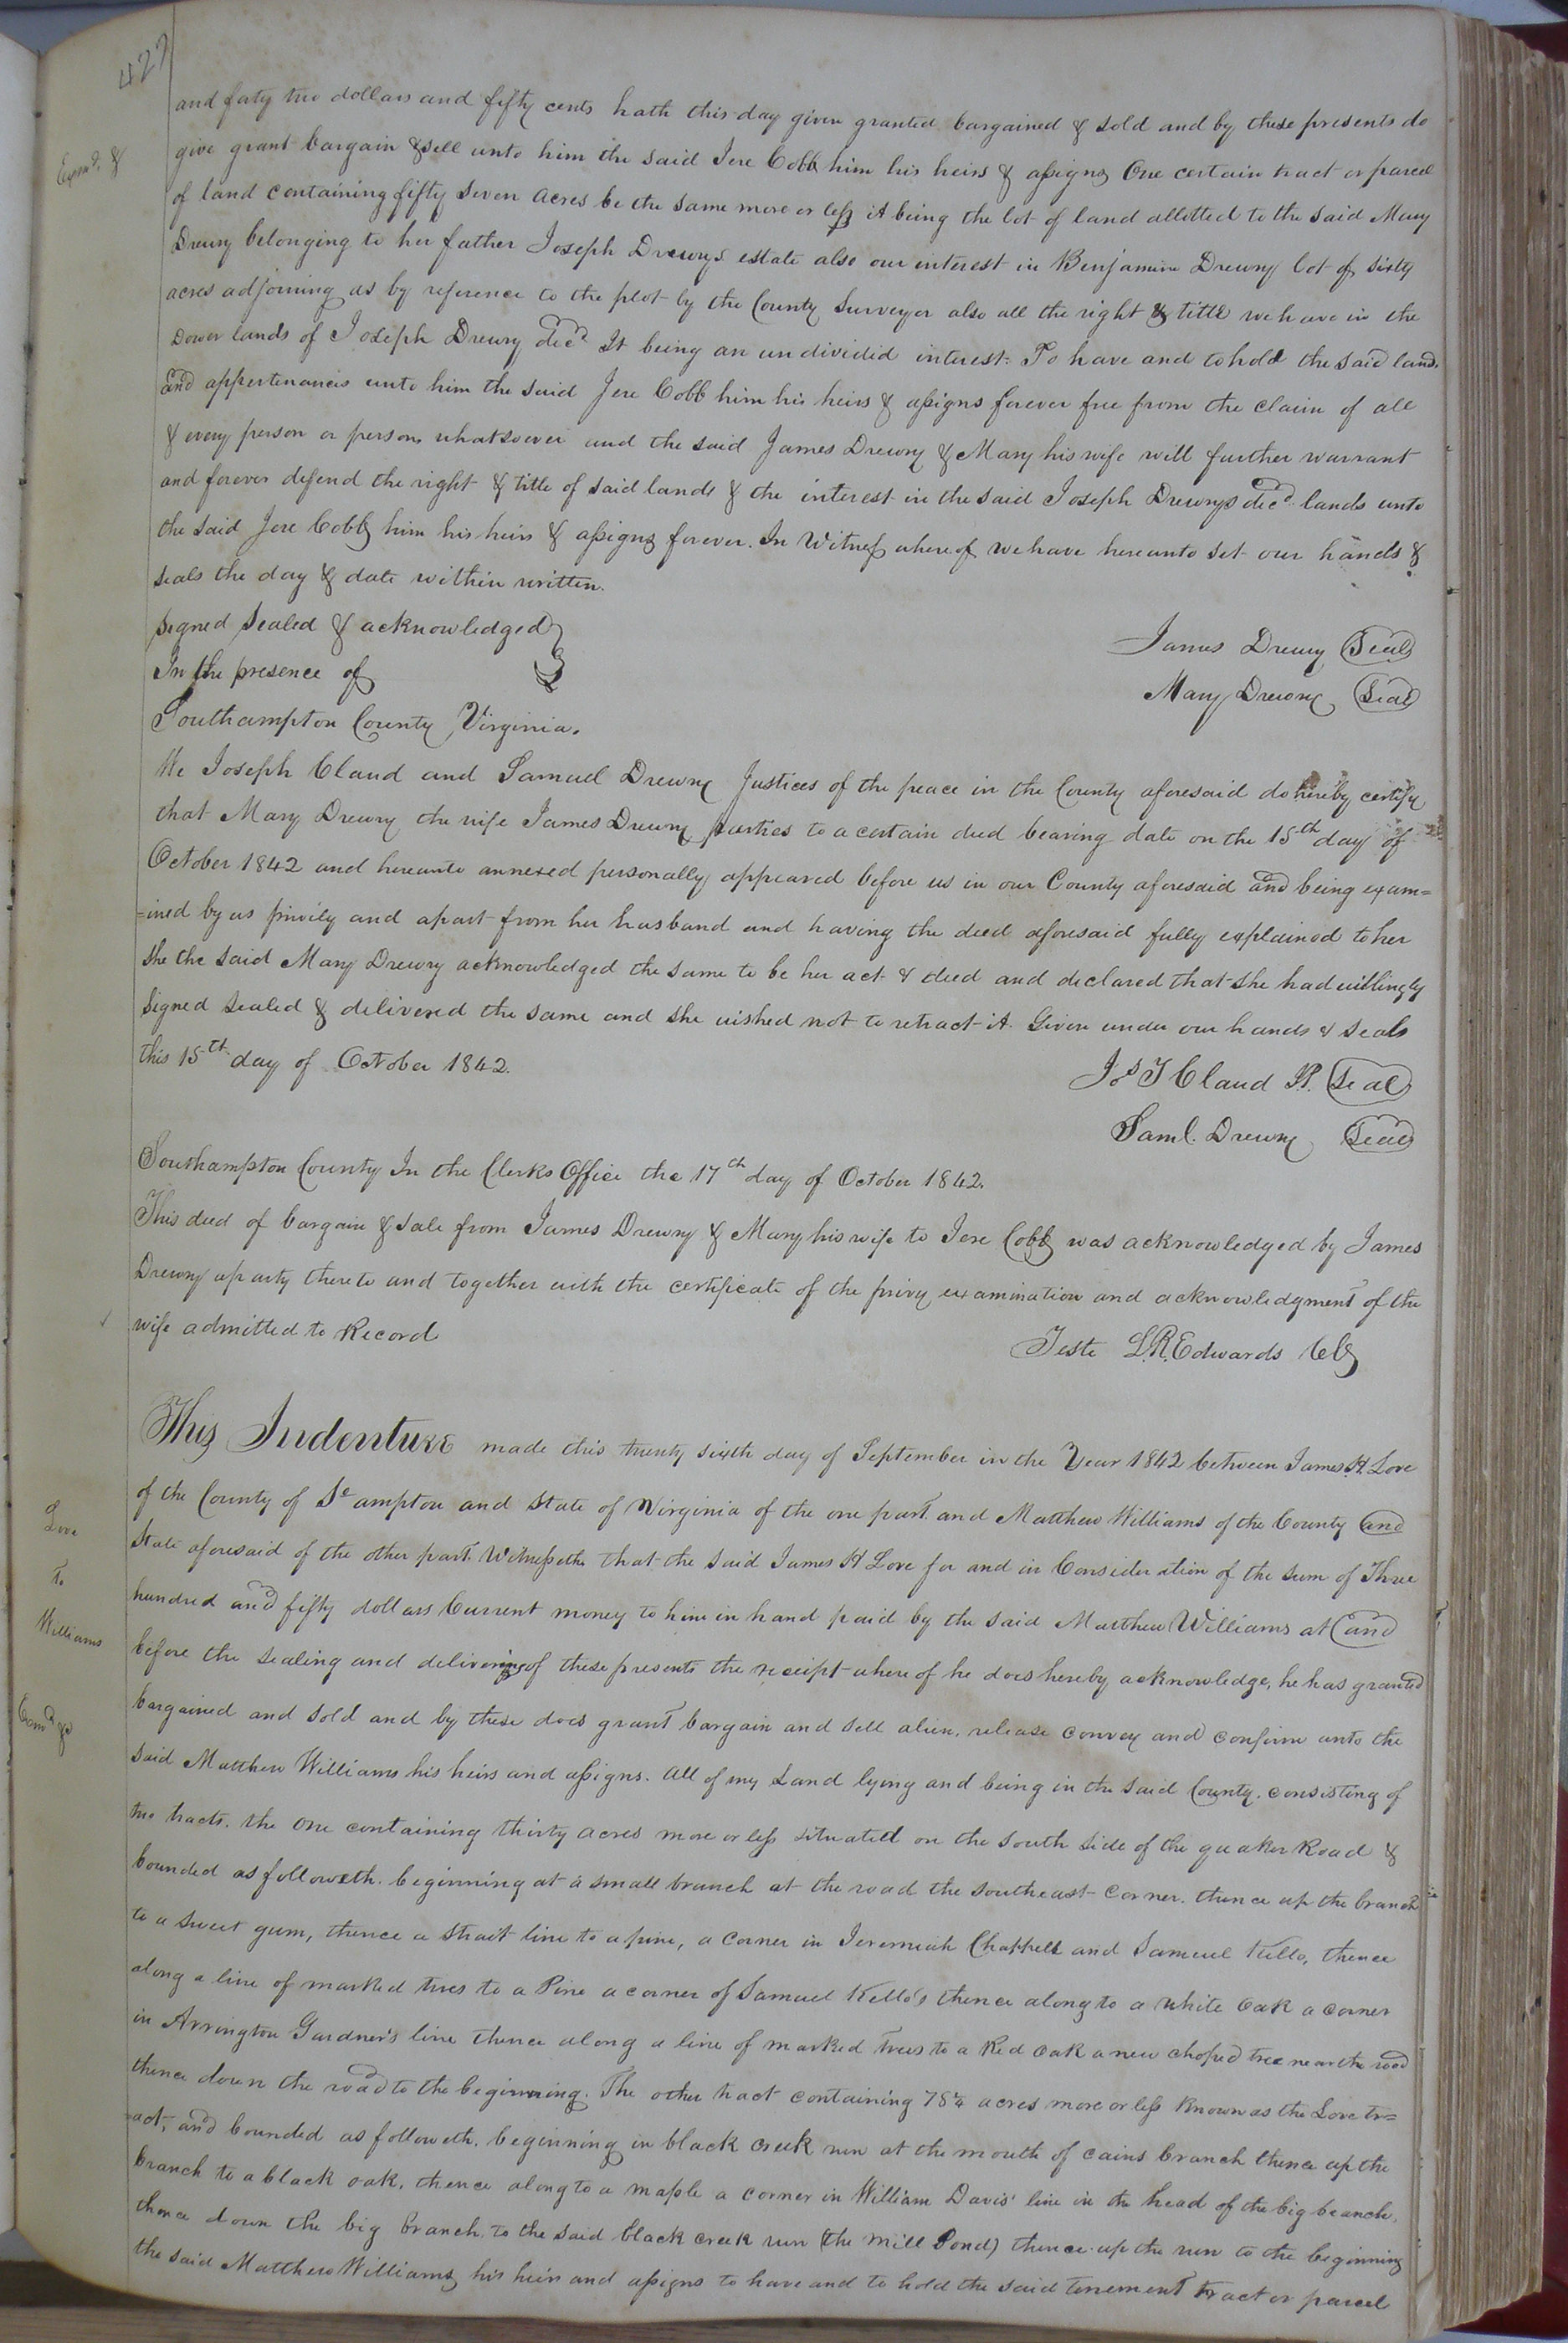 422
and forty two dollars and fifty cents hath this day given granted bargained & sold and by these presents do
Exam.d &
give grant bargain & sell unto him the said Jere Cobb him his heirs & assigns One certain tract or parcel
of land containing fifty seven acres be the same more or less it being the lot of land allotted to the said Mary
Drewry belonging to her father Joseph Drewrys estate also our interest in Benjamin Drewry lot of sixty
acres adjoining as by reference to the plot by the County Surveyor also all the right & title we have in the
Dower lands of Joseph Drewry decd It being an undivided interest. To have and to hold the said land
and appertenancis unto him the said Jere Cobb him his heirs & assigns forever free from the claim of all
& every person or persons whatsoever and the said James Drewry & Mary his wife will further warrant
and forever defend the right & title of said lands & the interest in the said Joseph Drewrys decd lands unto
the said Jere Cobb him his heirs & assigns forever. In Witness whereof we have hereunto set our hands &
seals the day & date within written.
signed sealed & acknowledged
James Drewry Seal
In the presence of
Mary Drewry Seal
Southampton County Virginia.
We Joseph Claud and Samuel Drewry Justices of the peace in the County aforesaid do hereby certify
that Mary Drewry the wife James Drewry parties to a certain deed bearing date on the 15th day of
October 1842 and hereunto annexed personally appeared before us in our County aforesaid and being exam=
=ined by us privily and apart from her husband and having the deed aforesaid fully explained to her
she the said Mary Drewry acknowledged the same to be her act & deed and declared that she had willingly
signed sealed & delivered the same and she wished not to retract it. Given under our hands & seals
this 15th day of October 1842.
Jos T Claud JP. Seal
Saml. Drewry Seal
Southampton County In the Clerks Office the 17th day of October 1842.
This deed of bargain & sale from James Drewry & Mary his wife to Jere Cobb was acknowledged by James
Drewry a party thereto and together with the certificate of the privy examination and acknowledgment of the
wife admitted to Record
Teste L.R. Edwards Clk
This Indenture made this twenty sixth day of September in the Year 1842 between James H. Love
of the County of So ampton and State of Virginia of the one part and Matthew Williams of the County and
Love
State aforesaid of the other part. Witnesseth that the said James H Love for and in Consideration of the sum of Three
To
hundred and fifty dollars Current money to him in hand paid by the said Matthew Williams at and
Williams
before the sealing and delivering of these presents the receipt where of he does hereby acknowledge, he has granted
Exam.d &
bargained and sold and by these does grant bargain and sell alien, release convey and confirm unto the
said Matthew Williams his heirs and assigns. All of my Land lying and being in the said County. consisting of
two tracts. the One containing thirty acres more or less situated on the south side of the quaker Road &
bounded as followeth. beginning at a small branch at the road the southeast Corner. thence up the branch
to a sweet gum, thence a strait line to a pine, a Corner in Jeremiah Chappell and Samuel Kello, thence
along a line of marked trees to a Pine a corner of Samuel Kello's thence along to a white oak a corner
in Arrington Gardner's line thence along a line of marked trees to a Red oak a new choped tree near the road
thence down the road to the beginning. The other tract containing 78¼ acres more or less Known as the Love tr=
=act, and bounded as followeth. beginning in black creek run at the mouth of cains branch thence up the
branch to a black oak. thence along to a maple a corner in William Davis' line in the head of the big branch,
thence down the big branch. to the said black creek run (the Mill Pond) thence up the run to the beginning
the said Matthew Williams his heirs and assigns to have and to hold the said tenement tract or parcel